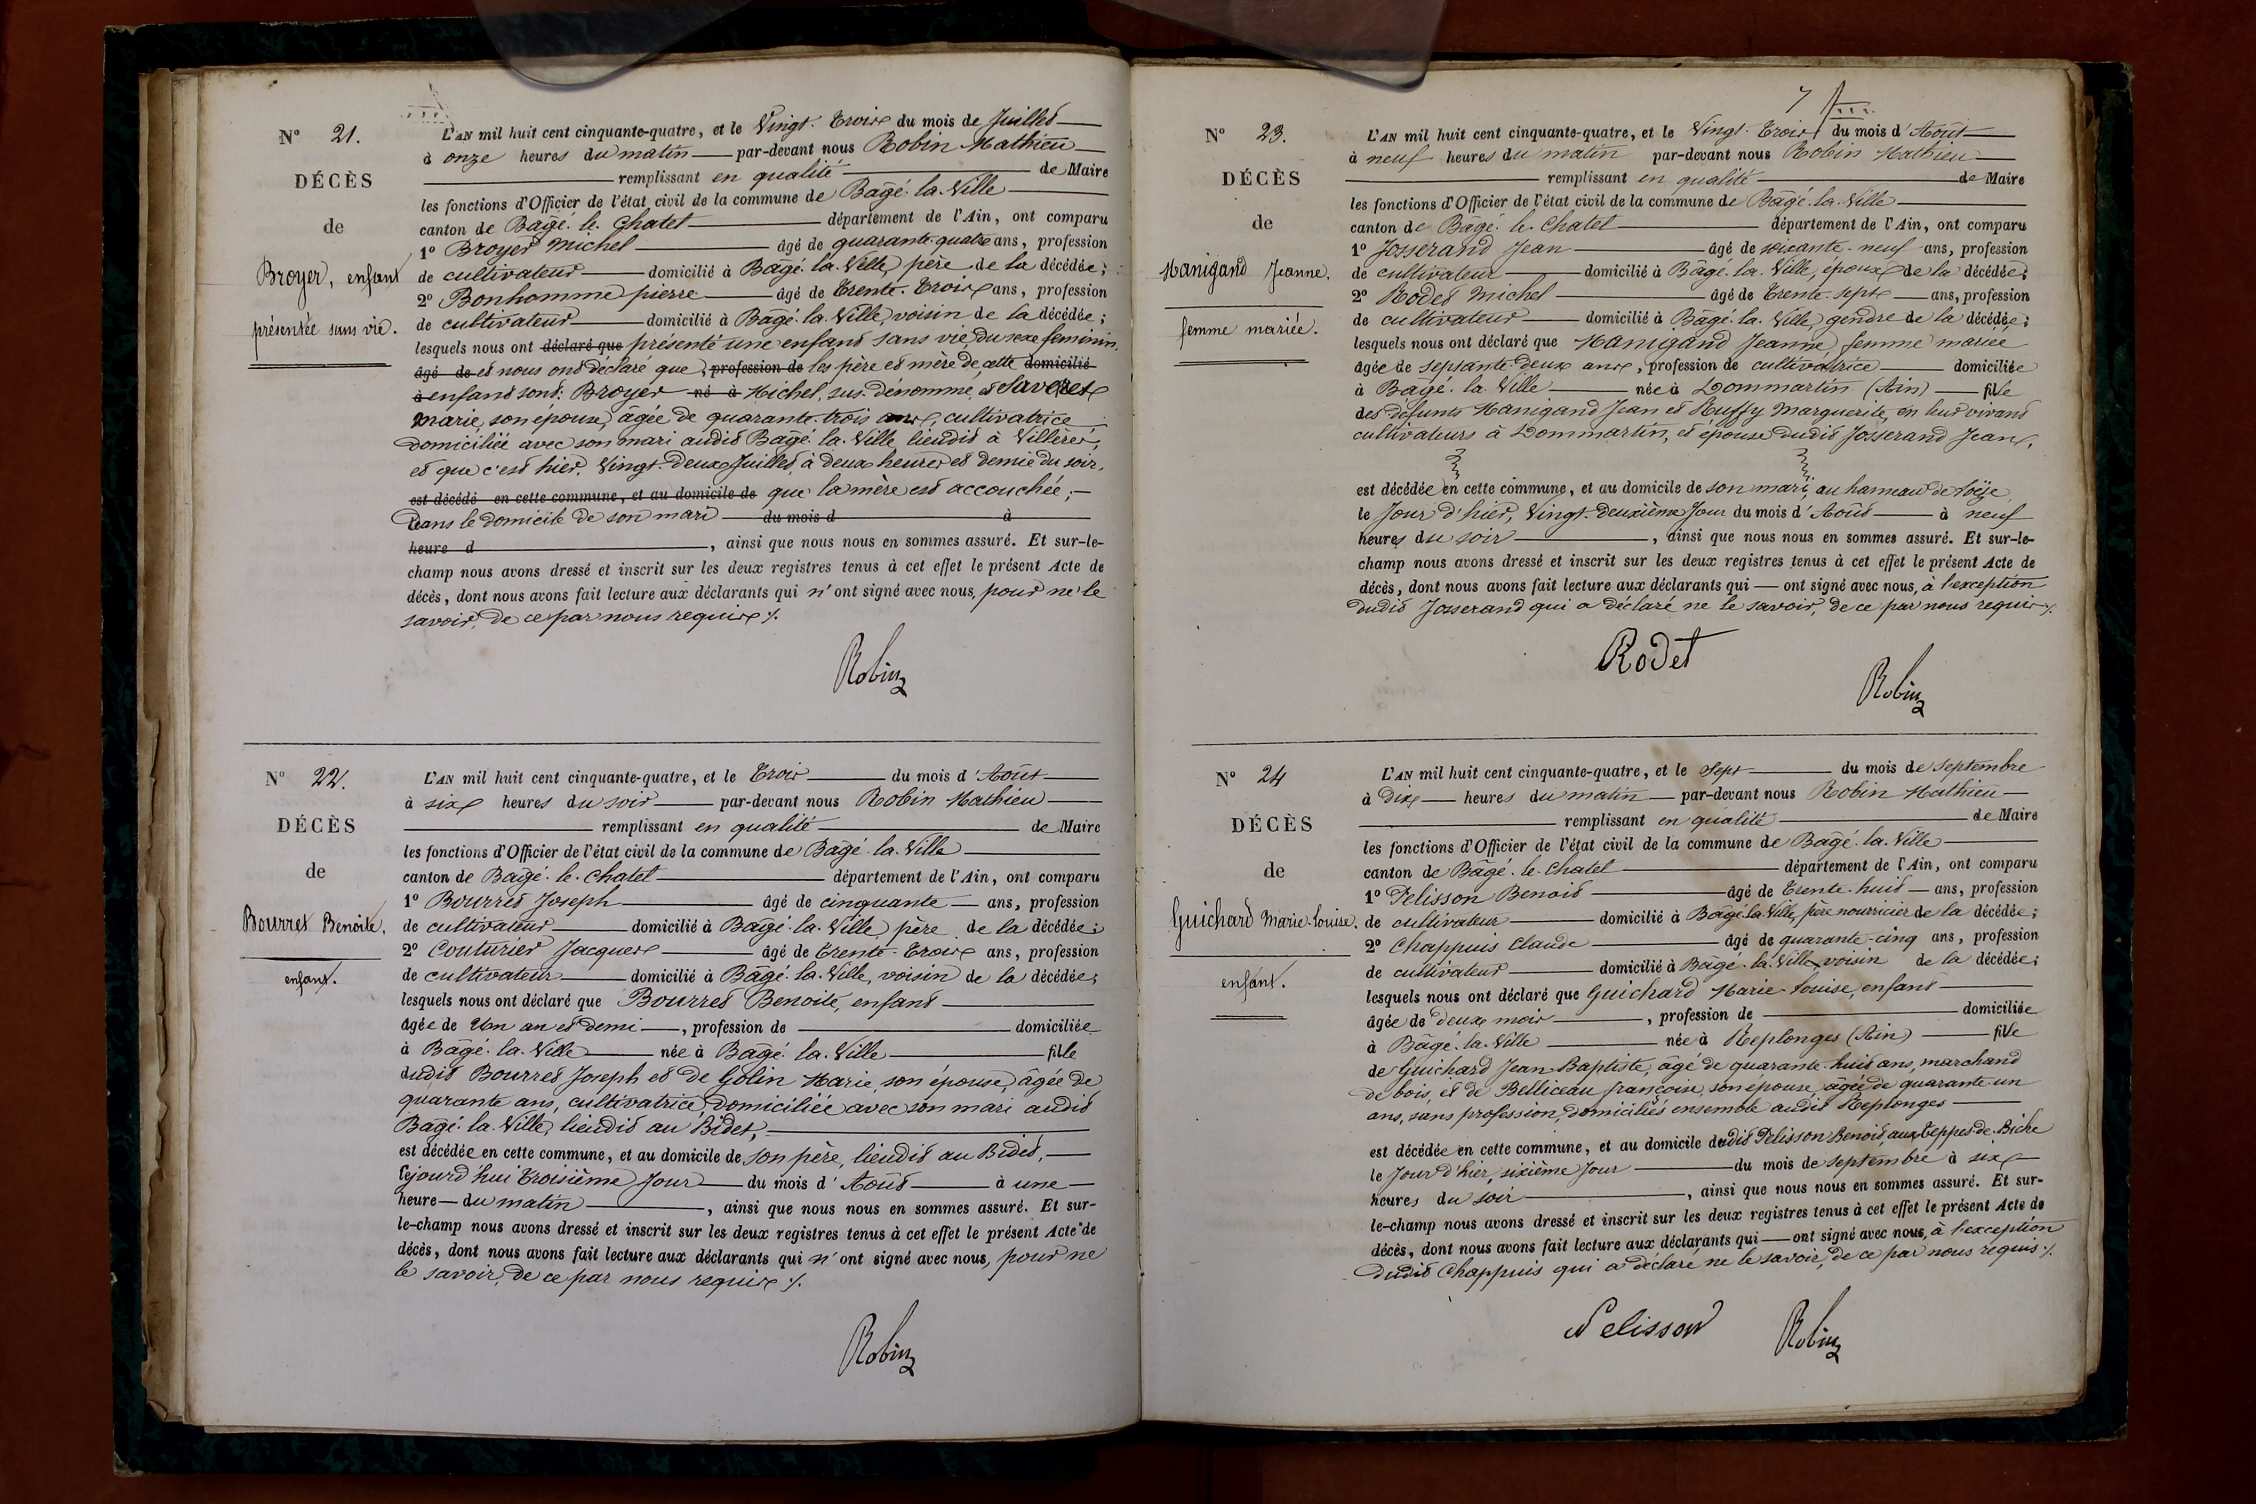 N° 21.
DÉCÈS
de
Broyer, enfant
présentée sans vie.
L'AN mil huit cent cinquante-quatre, et le Vingt-Trois du mois de Juillet
à onze heures du matin par-devant nous Robin Mathieu
remplissant en qualité de Maire
les fonctions d'Officier de l'état civil de la commune de Bâgé-la-Ville
canton de Bâgé-le-Chatel département de l'Ain, ont comparu
1° Broyer Michel âgé de quarante-quatre ans, profession
de cultivateur domicilié à Bâgé-la-Ville, père de la décédée;
2° Bonhomme pierre âgé de Trente-Trois ans, profession
de cultivateur domicilié à Bâgé-la-Ville, voisin de la décédée;
lesquels nous ont déclaré que présenté une enfant sans vie, du sexe féminin,
âgé de et nous ont déclaré que, profession de les père et mère de cette domicilié
à enfant sont: Broyer né à Michel, sus-dénommé, et
Marie, son épouse, âgée de quarante-trois ans, cultivatrice
domiciliée avec son mari audit Bâgé-la-Ville, lieudit à
et que c'est hier, Vingt-Deux Juillet, à deux heures et demie du soir,
est décédé en cette commune, et au domicile de que la mère est accouchée,
Dans le domicile de son mari du mois d à
heure d , ainsi que nous nous en sommes assuré. Et sur-le-
champ nous avons dressé et inscrit sur les deux registres tenus à cet effet le présent Acte de
décès, dont nous avons fait lecture aux déclarants qui n'ont signé avec nous, pour ne le
savoir, de ce par nous requis ./.
Robin
N° 22.
DÉCÈS
de
Bourret Benoite,
enfant.
L'AN mil huit cent cinquante-quatre, et le Trois du mois d'Août
à six heures du soir par-devant nous Robin Mathieu
remplissant en qualité de Maire
les fonctions d'Officier de l'état civil de la commune de Bâgé-la-Ville
canton de Bâgé-le-Chatel département de l'Ain, ont comparu
1° Bourret Joseph âgé de cinquante ans, profession
de cultivateur domicilié à Bâgé-la-Ville, père de la décédée;
2° Couturier Jacques âgé de Trente-Trois ans, profession
de cultivateur domicilié à Bâgé-la-Ville, voisin de la décédée;
lesquels nous ont déclaré que Bourret Benoite, enfant
âgée de Un an et demi, profession de domiciliée
à Bâgé-la-Ville née à Bâgé-la-Ville fille
dudit Bourret Joseph et de Golin Marie, son épouse, âgée de
quarante ans, cultivatrice, domiciliée avec son mari audit
Bâgé-la-Ville, lieudit au Bidet,
est décédée en cette commune, et au domicile de son père, lieudit au Bidet,
Cejourd'hui Troisième Jour du mois d'Août à une
heure du matin, ainsi que nous nous en sommes assuré. Et sur-
le-champ nous avons dressé et inscrit sur les deux registres tenus à cet effet le présent Acte de
décès, dont nous avons fait lecture aux déclarants qui n'ont signé avec nous, pour ne
le savoir, de ce par nous requis ./.
Robin
7
N° 23.
DÉCÈS
de
Manigand Jeanne.
femme mariée.
L'AN mil huit cent cinquante-quatre, et le Vingt-Trois du mois d'Août
à neuf heures du matin par-devant nous Robin Mathieu
remplissant en qualité de Maire
les fonctions d'Officier de l'état civil de la commune de Bâgé-la-Ville
canton de Bâgé-le-Chatel département de l'Ain, ont comparu
1° Josserand Jean âgé de soixante-neuf ans, profession
de cultivateur domicilié à Bâgé-la-Ville, époux de la décédée;
2° Rodet Michel âgé de Trente-sept ans, profession
de cultivateur domicilié à Bâgé-la-Ville, gendre de la décédée;
lesquels nous ont déclaré que Manigand Jeanne, femme mariée
âgée de septante-deux ans, profession de cultivatrice domiciliée
à Bâgé-la-Ville née à Dommartin (Ain) fille
des défunts Manigand Jean et Ruffy Marguerite, en leur vivant
cultivateurs à Dommartin, et épouse dudit Josserand Jean,
est décédée en cette commune, et au domicile de son mari, au hameau de
le Jour d'hier, Vingt-Deuxième Jour du mois d'Août à neuf
heures du soir, ainsi que nous nous en sommes assuré. Et sur-le-
champ nous avons dressé et inscrit sur les deux registres tenus à cet effet le présent Acte de
décès, dont nous avons fait lecture aux déclarants qui ont signé avec nous, à l'exception
dudit Josserand qui a déclaré ne le savoir, de ce par nous requis ./.
Rodet
Robin
N° 24
DÉCÈS
de
Guichard Marie-Louise.
enfant.
L'AN mil huit cent cinquante-quatre, et le Sept du mois de Septembre
à Dix heures du matin par-devant nous Robin Mathieu
remplissant en qualité de Maire
les fonctions d'Officier de l'état civil de la commune de Bâgé-la-Ville
canton de Bâgé-le-Chatel département de l'Ain, ont comparu
1° Pelisson Benoit âgé de Trente-huit ans, profession
de cultivateur domicilié à Bâgé-la-Ville, père nourricier de la décédée;
2° Chappuis Claude âgé de quarante-cinq ans, profession
de cultivateur domicilié à Bâgé-la-Ville, voisin de la décédée;
lesquels nous ont déclaré que Guichard Marie-Louise, enfant
âgée de deux mois, profession de domiciliée
à Bâgé-la-Ville née à Replonges (Ain) fille
de Guichard Jean-Baptiste, âgé de quarante-huit ans, marchand
de bois, et de Belliceau françoise, son épouse, âgée de quarante-un
ans, sans profession, domiciliés ensemble audit Replonges
est décédée en cette commune, et au domicile dudit Pelisson Benoit, aux Teppes-de-Biche
le Jour d'hier, sixième Jour du mois de Septembre à six
heures du soir, ainsi que nous nous en sommes assuré. Et sur-
le-champ nous avons dressé et inscrit sur les deux registres tenus à cet effet le présent Acte de
décès, dont nous avons fait lecture aux déclarants qui ont signé avec nous, à l'exception
dudit Chappuis qui a déclaré ne le savoir, de ce par nous requis ./.
Pelisson
Robin